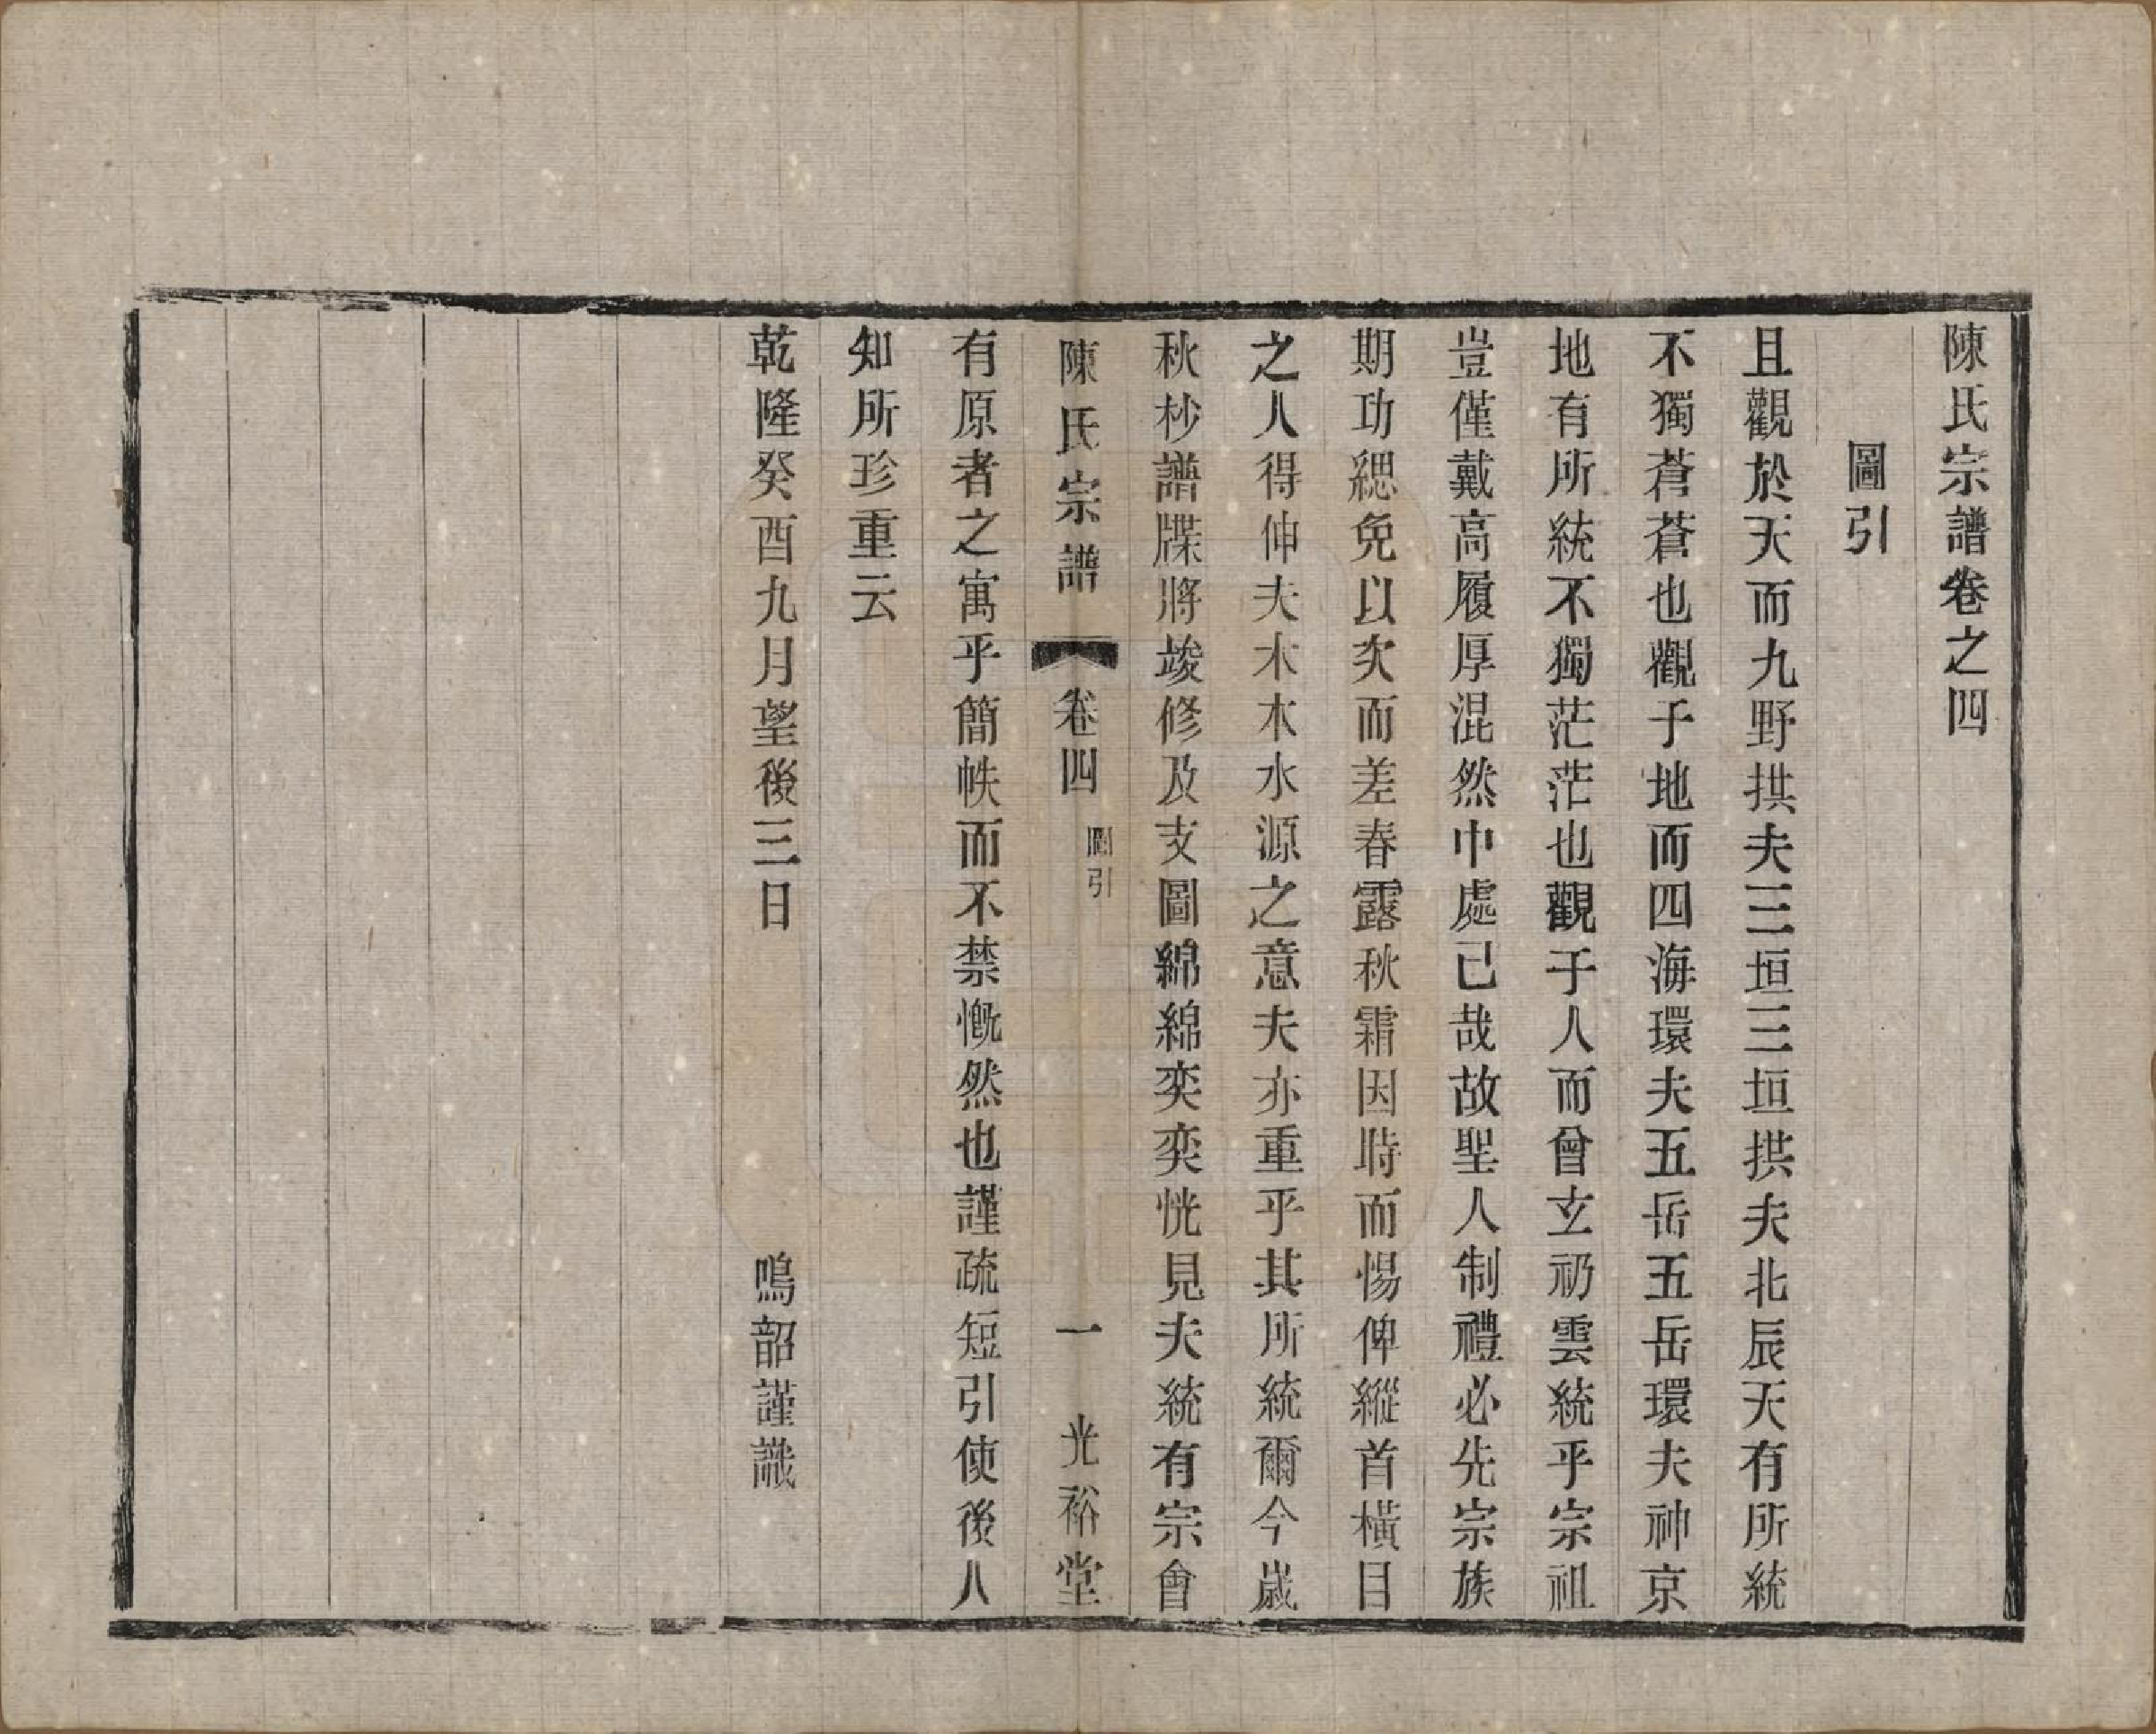 陳氏宗譜卷之四
圖引
且觀於天而九野拱夫三垣三垣拱夫北辰天有所統
不獨蒼蒼也觀于地而四海環夫五岳五岳環夫神京
地有所統不獨茫茫也觀于人而曾玄礽雲統乎宗祖
豈僅戴高履厚混然中處已哉故聖人制禮必先宗族
期功緦免以次而差春露秋霜因時而惕俾縱首橫目
之人得伸夫木木水源之意夫亦重乎其所統爾今歲
秋杪譜牒將竣修及支圖綿綿奕奕恍見夫統有宗會
陳氏宗譜
卷四
圖引
一
光裕堂
有原者之寓乎簡帙而不禁慨然也謹疏短引使後人
知所珍重云
乾隆癸酉九月望後三日
鳴韶謹識